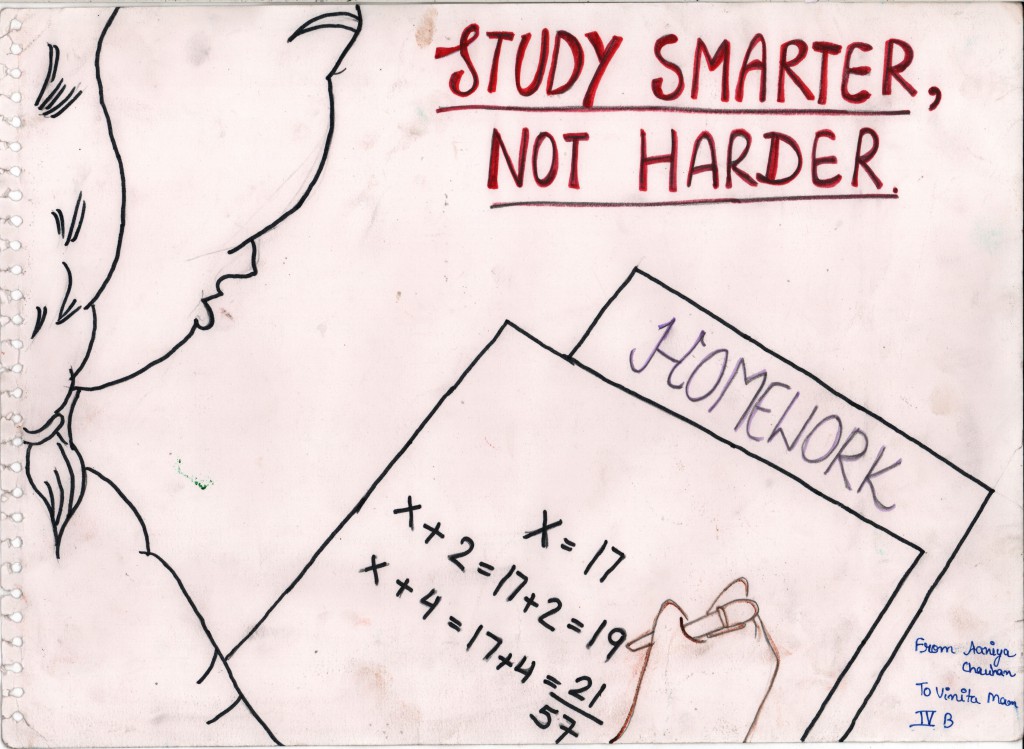 STUDY SMARTER,
NOT HARDER.
HOMEWORK
x = 17
x + 2 = 17 + 2 = 19
x + 4 = 17 + 4 = 21
57
From Aaniya
Chauhan
To Vinita Mam
IV B